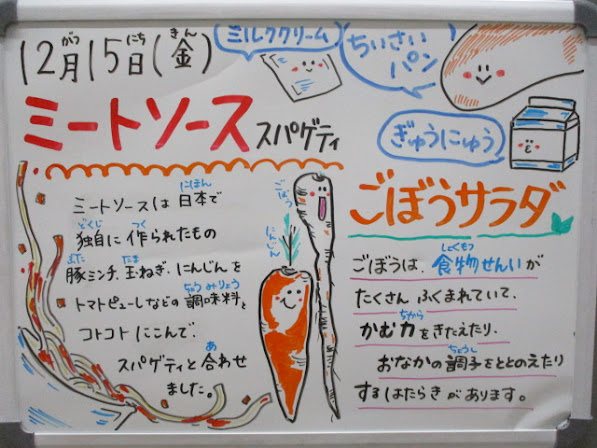 12月15日(金)
がつ にち きん
ミルククリーム
ちいさい
パン
ぎゅうにゅう
ミートソース スパゲティ
ミートソースは日本で
にほん
独自に作られたもの
どくじ つく
豚ミンチ、玉ねぎ、にんじんを
ぶた たま
トマトピューレなどの調味料と
ちょうみりょう
コトコトにこんで、
スパゲティと合わせ
あ
ました。
ごぼう
にんじん
ごぼうサラダ
ごぼうは、食物せんいが
しょくもつ
たくさんふくまれていて、
かむ力をきたえたり、
ちから
おなかの調子をととのえたり
ちょうし
するはたらきがあります。